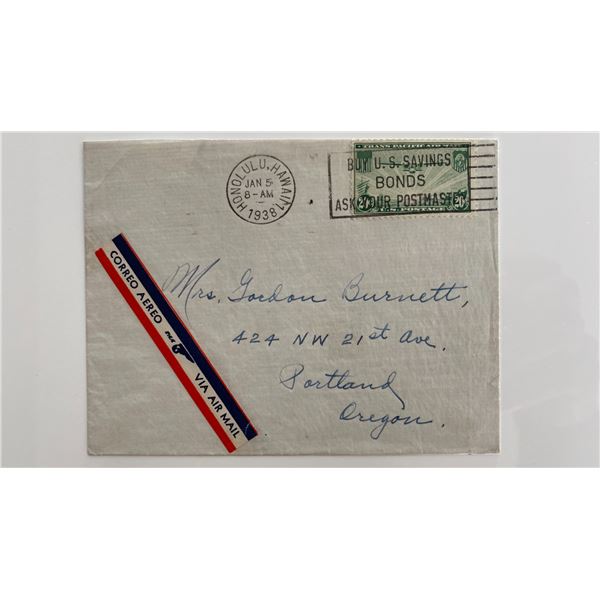 HONOLULU, HAWAII
JAN 5
8-AM
1938
TRANS-PACIFIC AIR MAIL
BUY U.S. SAVINGS
BONDS
ASK YOUR POSTMASTER
U.S. POSTAGE
CORREO AEREO PAA VIA AIR MAIL
Mrs. Gordon Burnett,
424 NW 21st Ave.
Portland
Oregon.